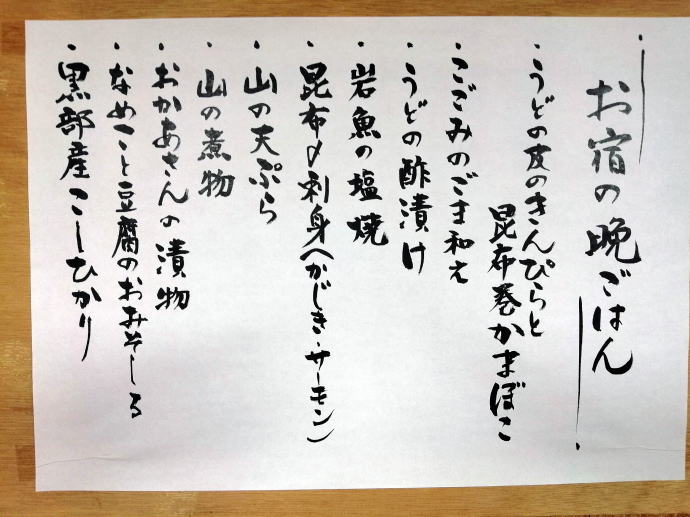 お宿の晩ごはん
・うどの皮のきんぴらと
昆布巻かまぼこ
・こごみのごま和え
・うどの酢漬け
・岩魚の塩焼
・昆布〆刺身(かじき・サーモン)
・山の天ぷら
・山の煮物
・おかあさんの漬物
・なめこと豆腐のおみそしる
・黒部産こしひかり